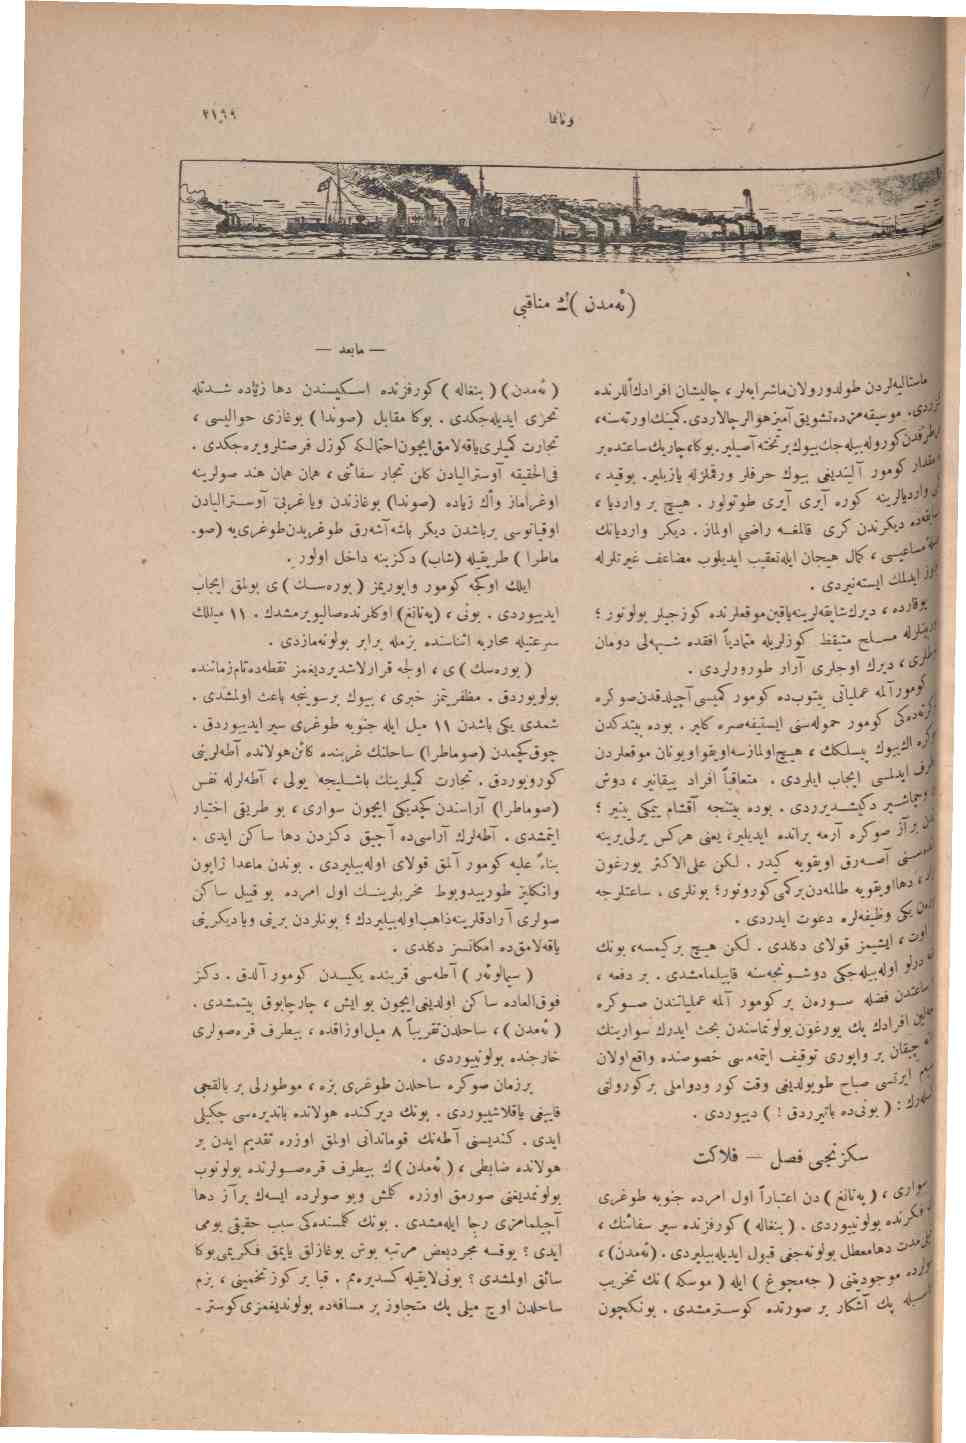 ٢١٩٩
(ئه‌مدن )ك مناقبى
— مابعد —
طولدورولان ماشرابه‌لر ، چاليشان افرادك اللرنده
موسيقه‌مزده تشويق آميز هوالر چالاردى. كمينك اورته‌سنه ،
بر تخته آصيلير. بوكا، چاريك ساعتده بر
كومور آليندينى بيوك حرفلر ورقملرله يازيلير. بوقيد ،
كوره آيرى آيرى طوتولور . هيچ بر وارديا ،
ديكرندن كرى قالمغه راضى اولماز. ديكر واردیانك
كمال هيجان ايله تعقيب ايديلوب مضاعف غيرتلرله
ايدلمك ايسته‌نيردى .
ديرك شابقه‌لرينه ياقين موقعلرنده كوزجيلر بولونور ؛
مسلح متيقظ كوزلريله متماديا افقده شبهه‌لى دومان
ديرك اوجلرى آرار طورورلردى .
كومور آلمه عملياتى بيتوب‌ده كومور كميسى آچيلدقدن صوكره
كومور حموله‌سنى ايستيفه صره كلير . بوده بيتدكدن
بيوك پيسلكك ، هيچ اولمازسه اويقو اويونان موقعلردن
ايدلمسى ايجاب ايلردى . متعاقباً افراد ييقانير ، دوش
دكيشديرردى . بوده بيتنجه آقشام يمكى يينير ؛
صوكره آرمه برانده ايديلير، يعنى هركس يرلى يرينه
آصه‌رق اويقويه كيدر. لكن على الاكثر يورغون
دها اويقويه طالمه‌دن بركمى كورونور؛ بونلرى ، ساعتلرجه
يكى وظيفه‌لره دعوت ايدردى .
ايشيمز قولاى دكلدى . لكن هيچ بر كيمسه، بونك
اوله‌بيله‌جكى دوشونجه‌سنه قاپيلمامشدى . بر دفعه ،
ساعتدن فضله سورەن بر كومور آلمه عملياتندن صوكره
افرادك پك يورغون بولونماسندن بحث ايدرك سوارينك
چيقان بر واپورى توقيف ايتمه‌مسى خصوصنده واقع اولان
ايرتسى صباح طويولدينى وقت كور ودواملى بركورولتى
: ( بونى‌ده باتيرردق ! ) دييوردى .
سكزنجى فصل — فلاكت
سوارى ، ( په‌نانغ ) دن اعتباراً اول امرده جنوبه طوغرى
فكرنده بولونييوردى . ( بنغاله ) كورفزنده سير سفائنك ،
مدت دها معطل بولونه‌جغى قبول ايديله‌بيليردى. (ئه‌مدن) ،
موجوديتنى ( جه‌مچوغ ) ايله ( موسكه ) نك تخريب
پك آشكار بر صورتده كوسترمشدى . بونكچون
( ئه‌مدن ) ( بنغاله ) كورفزنده اسكيسندن دها زياده شدتله
تحرى ايديله‌جكدى . بوكا مقابل (صوندا) بوغازى حواليسى ،
تجارت كميلرى ياقه‌لامق ايچون احتمالكه كوزل فرصتلر ويره‌جكدى .
فى‌الحقيقه آوسترالیادن كلن تجار سفائنى ، همان همان هند صولرينه
اوغراماز واك زياده (صوندا) بوغازندن ويا غربى آوسترالیادن
اوقيانوسى برباشدن ديكر باشه آشه‌رق طوغريدن طوغرى‌يه (صو-
ماطرا ) طريقيله (شاب) دكزينه داخل اولور .
ايلك اوكجه كومور واپوريمز ( بورەسك ) ى بولمق ايجاب
ايدييوردى . بونى ، (په‌نانغ) اوكلرنده صاليويرمشدك . ١١ ميللك
سرعتيله محاربه اثناسنده بزمله برابر بولونه‌مازدى .
( بورەسك ) ى ، اولجه قرارلاشديرديغمز نقطه‌ده تام زماننده
بولويوردق . مظفريتمز خبرى ، بيوك برسوينجه باعث اولمشدى .
شمدى يكى باشدن ١١ ميل ايله جنوبه طوغرى سير ايدييوردق .
چوق كچمدن (صوماطرا) ساحلنك غربنده كائن هولانده آطه‌لرينى
كورويوردق . تجارت كميلرينك باشليجه يولى ، آطه‌لرله نفس
(صوماطرا) آراسندن كچديكى ايچون سوارى ، بو طريقى اختيار
ايتمشدى . آطه‌لرك آراسى‌ده آچيق دكزدن دها ساكن ايدى .
بناءً عليه كومور آلمق قولاى اوله‌بيليردى . بوندن ماعدا ژاپون
وانكليز طورپيدوبوط مخربلرينك اول امرده بو قبيل ساكن
صولرى آرادقلرينه ذاهب اوله‌بيليردك ؛ بونلردن برينى ويا ديكرينى
ياقه‌لامق‌ده امكانسز دكلدى .
( سيمالوئەر ) آطه‌سى قربنده يكيدن كومور آلدق . دكز
فوق‌العاده ساكن اولدينى ايچون بو ايش ، چارچابوق بيتمشدى .
( ئه‌مدن ) ، ساحلدن تقريباً ٨ ميل اوزاقده ، بيطرف قره‌صولرى
خارجنده بولونييوردى .
برزمان صوكره ساحلدن طوغرى بزه ، موطورلى بر بالقجى
قايغى ياقلاشييوردى . بونك ديركنده هولانده بانديره‌سى چكيلى
ايدى . كنديسنى آطه‌نك قوماندانى اولمق اوزره تقديم ايدن بر
هولانده ضابطى ، ( ئه‌مدن ) ك بيطرف قره‌صولرنده بولونوب
بولونمديغنى صورمق اوزره كلمش وبو صولرده ايسه‌ك برآز دها
آچيلمامزى رجا ايله‌مشدى . بونك كلمسنده‌كى سبب حقيقى بومى
ايدى ؟ يوقسه مجرد بعض مرتبه بوش بوغازلق يايمق فكريمى بوكا
سائق اولمشدى ؟ بونى لايقيله كسديره‌مم . قبا بر كوز تخمينى ، بزم
ساحلدن اوچ ميلى پك متجاوز بر مسافه‌ده بولونديغمزى كوستر-